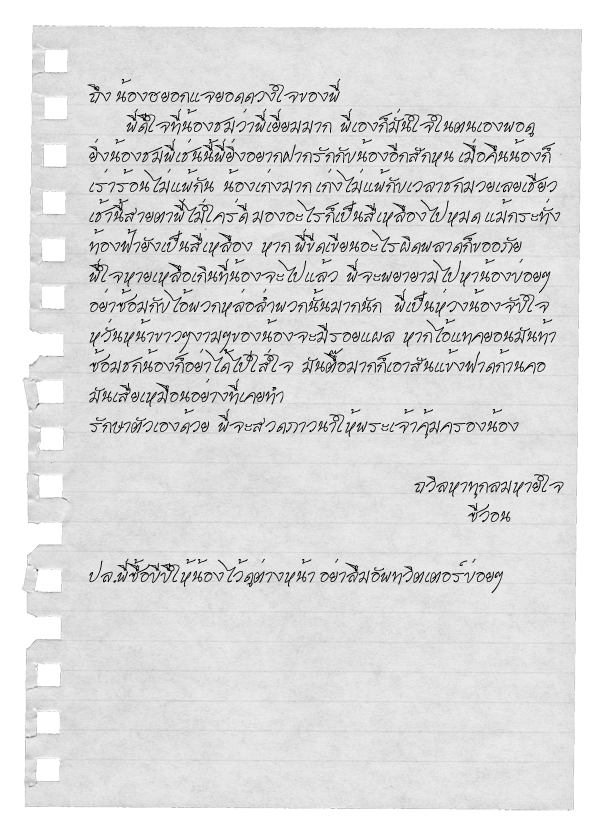 ถึง น้องชยอกแจยอดดวงใจของพี่
พี่ดีใจที่น้องชมว่าพี่เยี่ยมมาก พี่เองก็มั่นใจในตนเองพอดู
ยิ่งน้องชมพี่เช่นนี้พี่ยิ่งอยากฝากรักกับน้องอีกสักหน เมื่อคืนน้องก็
เร่าร้อนไม่แพ้กัน น้องเก่งมาก เก่งไม่แพ้กับเวลาชกมวยเลยเชียว
เช้านี้สายตาพี่ไม่ใคร่ดี มองอะไรก็เป็นสีเหลืองไปหมด แม้กระทั่ง
ท้องฟ้ายังเป็นสีเหลือง หาก พี่ขีดเขียนอะไรผิดพลาดก็ขออภัย
พี่ใจหายเหลือเกินที่น้องจะไปแล้ว พี่จะพยายามไปหาน้องบ่อยๆ
อย่าซ้อมกับไอ้พวกหล่อล่ำพวกนั้นมากนัก พี่เป็นห่วงน้องจับใจ
หวั่นหน้าขาวๆงามๆของน้องจะมีรอยแผล หากไอ้แทคยอนมันท้า
ซ้อมชกน้องก็อย่าได้ไปใส่ใจ มันตื๊อมากก็เอาสันแข้งฟาดก้านคอ
มันเสียเหมือนอย่างที่เคยทำ
รักษาตัวเองด้วย พี่จะสวดภาวนาให้พระเจ้าคุ้มครองน้อง
ถวิลหาทุกลมหายใจ
ชีวอน
ปล.พี่ซื้อบีบีให้น้องไว้ดูต่างหน้า อย่าลืมอัพทวิตเตอร์บ่อยๆ